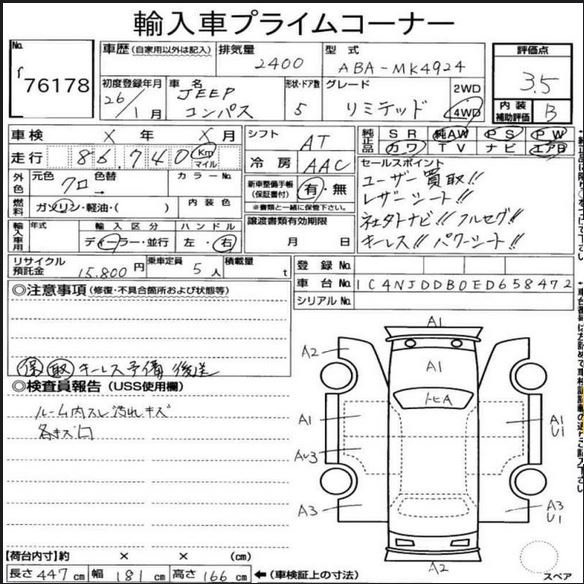 輸入車プライムコーナー
No.
76178
車歴 (自家用以外は記入)
排気量
2400
型式
ABA-MK4924
評価点
3.5
初度登録年月
26/1月
車名
JEEP
コンパス
形状・ドア数
5
グレード
リミテッド
2WD
4WD
内装
補助評価
B
車検 × 年 × 月
シフト AT
純正品 SR 純AW PS PW
カワ TV ナビ エアB
走行 86,740 Km マイル
冷房 AAC
セールスポイント
ユーザー買取!!
レザーシート!!
社外ナビ!! フルセグ!!
キーレス!! パワーシート!!
外色 元色 色替 カラーNo.
クロ →
新車整備手帳
(保証書付)
有・無
※書類と一緒に保管下さい。
燃料 ガソリン・軽油・( )
内装色
譲渡書類有効期限
月 日
輸入車用 年式 輸入区分 ハンドル
ディーラー・並行 左・右
リサイクル
預託金
15,800円
乗車定員 5人
積載量 t
登録No.
車台No. 1C4NJDDB0ED658472
シリアルNo.
◎注意事項 (修復・不具合箇所および状態等)
保 取 キーレス予備 後送
◎検査員報告 (USS使用欄)
ルーム内スレ汚れキズ
各キズ凹
A1
A2
A1
A2
トヒA
A1
A1
U1
AU3
A3
A3
U1
A2
スペア
【荷台内寸】約 × × cm
長さ 447 cm 幅 181 cm 高さ 166 cm ←(車検証上の寸法)